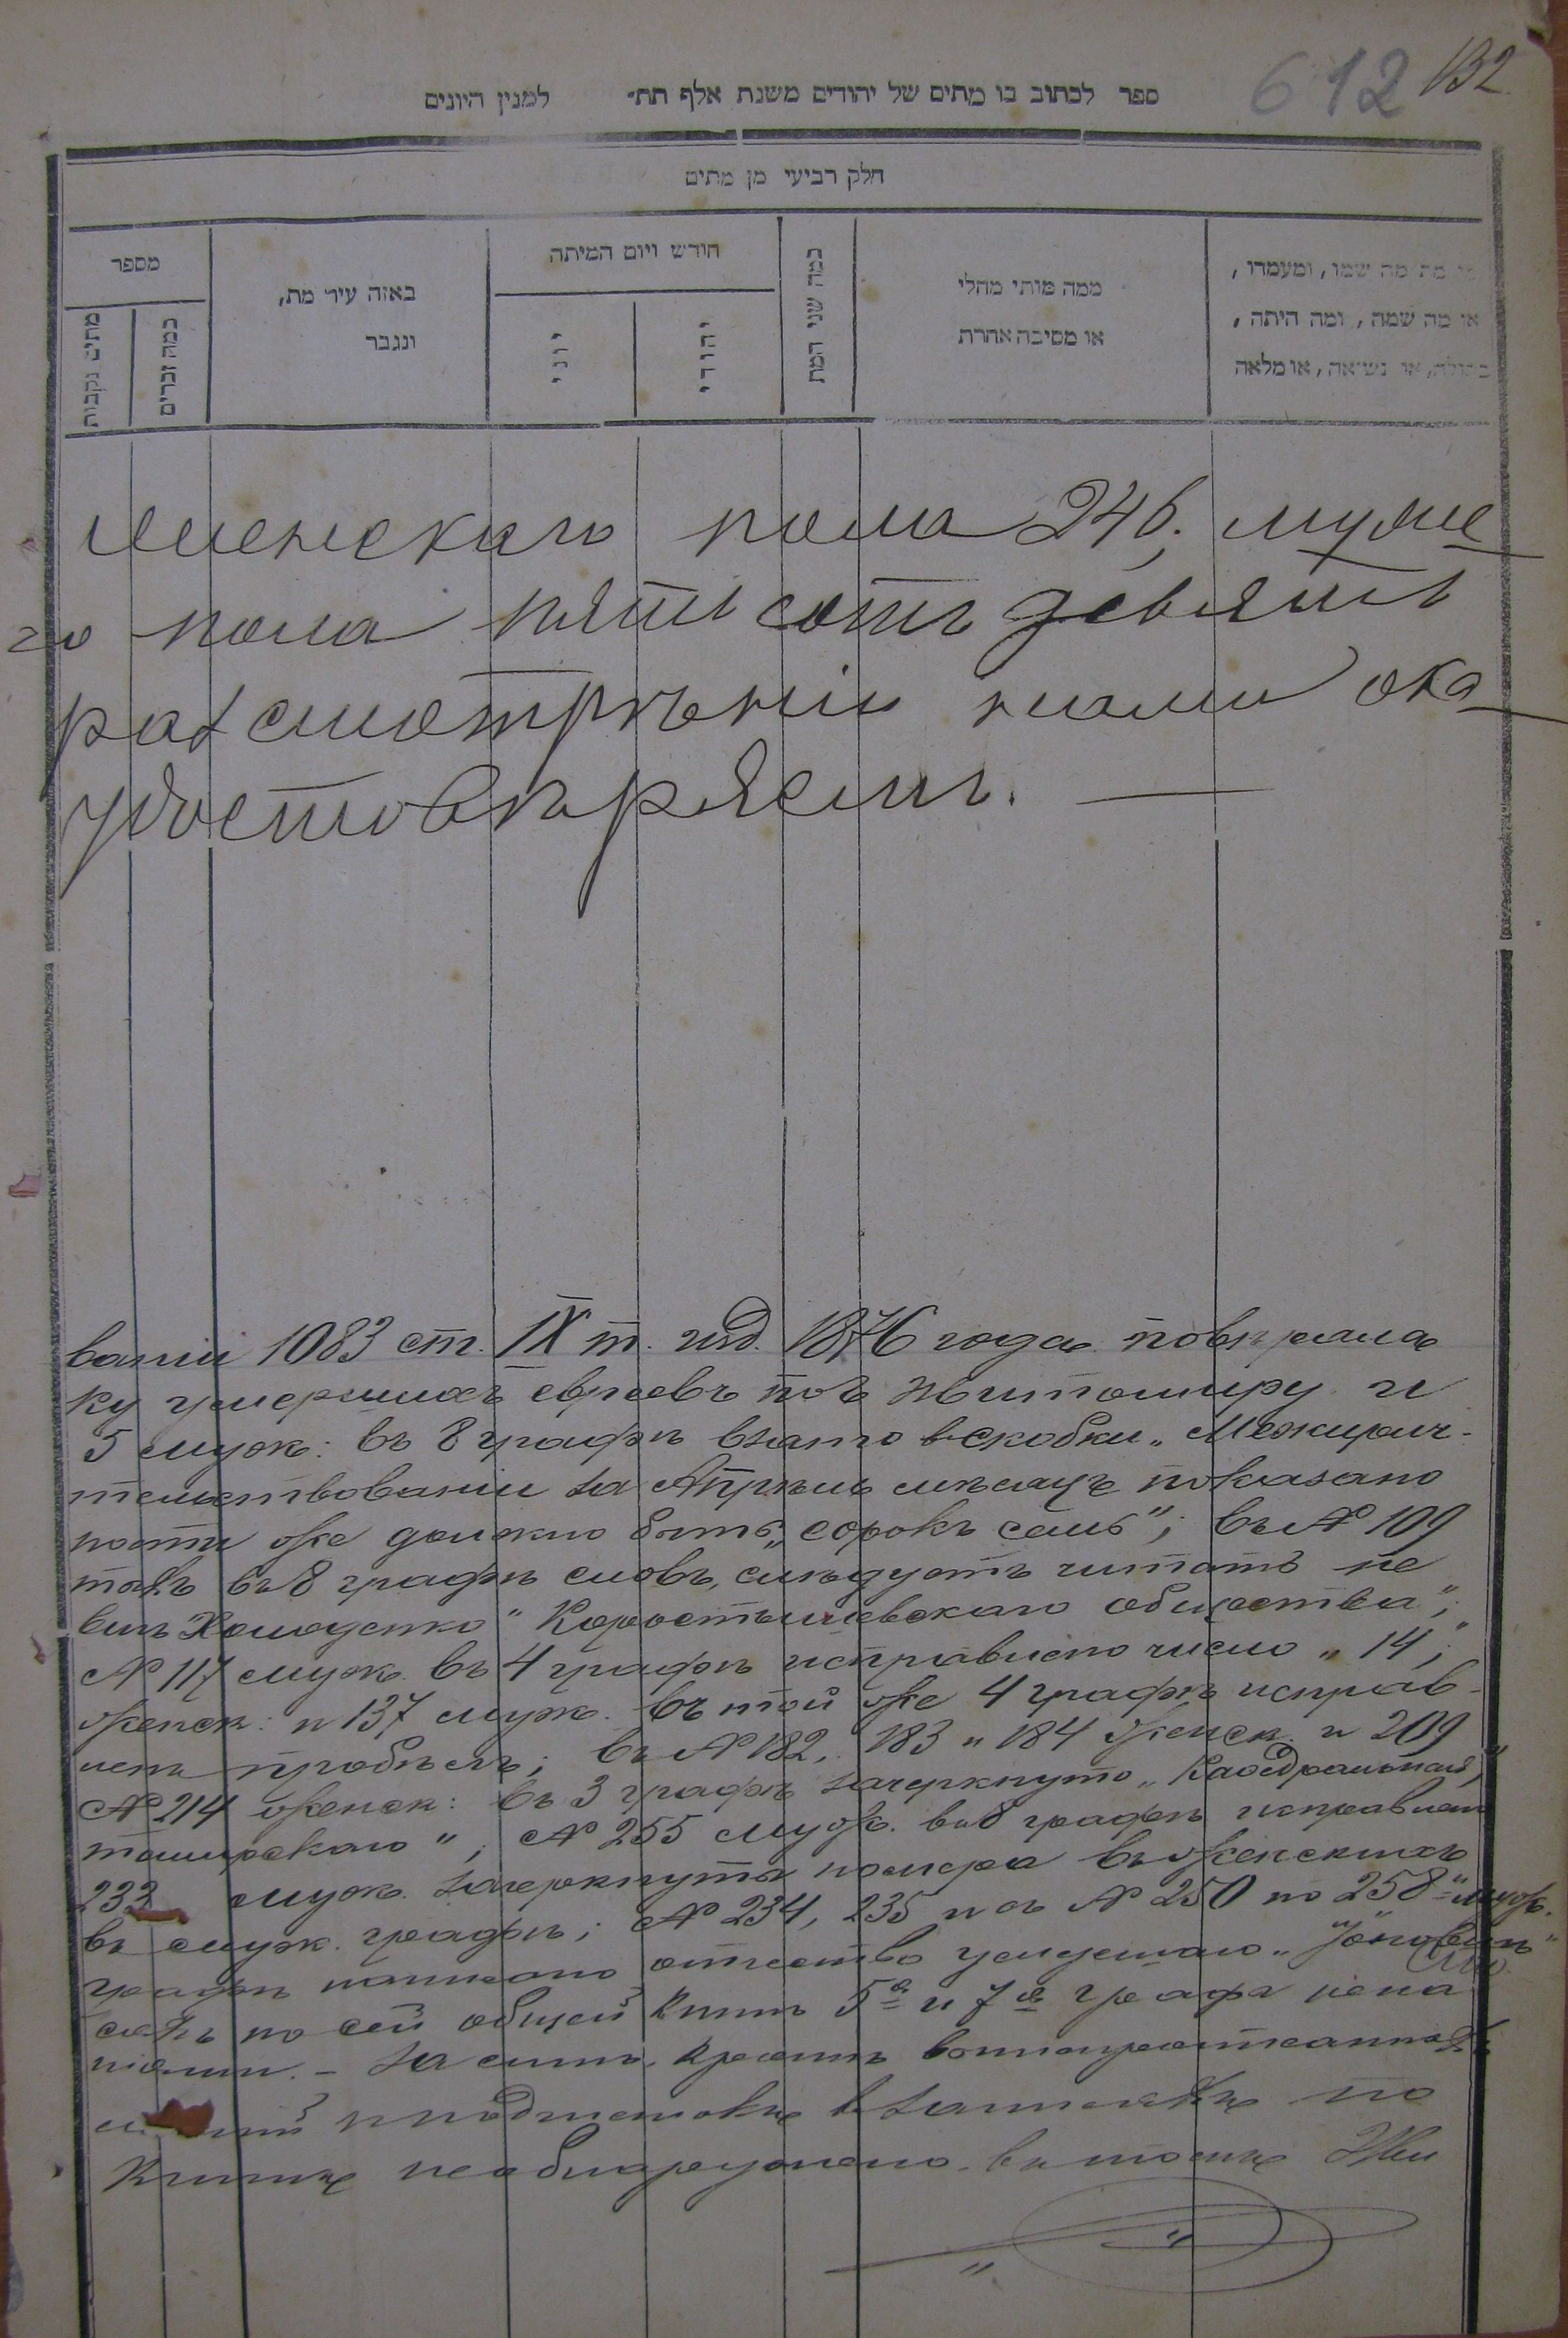 612 132
ספר לכתוב בו מתים של יהודים משנת אלף תת״ למנין היונים
חלק רביעי מן מתים
מת מה שמו, ומעמדו,
או מה שמה, ומה היתה,
בתולה, או נשואה, או מלאה
ממה מותי מחלי
או מסיבה אחרת
כמה שני המת
חודש ויום המיתה
יהודי
יוני
באזה עיר מת,
ונגבר
מספר
כמה זכרים
מתים נקבות
женскаго пола 246; муже
го пола пятьсотъ девять
разсмотрѣніи нами ока
удостовѣряемъ.
ваніи 1083 ст. IX т. изд. 1876 года повѣряла
ку умершихъ евреевъ по г. Житомиру и
5 муж: въ 8 графѣ взято в скобки „Межирич-
тельствованіи за Апрѣль мѣсяцъ показано
ности же должно быть „сорокъ семь"; въ № 109
такъ въ 8 графѣ словъ, слѣдуетъ читать не
Холоденко „Коростышевскаго общества";
№ 117 муж. въ 4 графѣ исправлено число „14;"
женск: и 137 муж. въ той же 4 графѣ исправ-
ленъ пробѣлъ; въ № 182, 183 и 184 женск. и 209
№ 214 женск: въ 3 графѣ зачеркнуто „Каѳедральной,
томирскаго"; № 255 муж. въ 8 графѣ исправлен
233 муж. зачеркнута номера въ женскихъ
въ муж. графѣ; № 234, 235 и съ № 250 по 258 муж.
графѣ написано отчество умершаго
по сей общей книгѣ 5я и 7я графа
за симъ, кромѣ
и подчистокъ в записяхъ по
Книгѣ необнаружено. въ томъ Жи